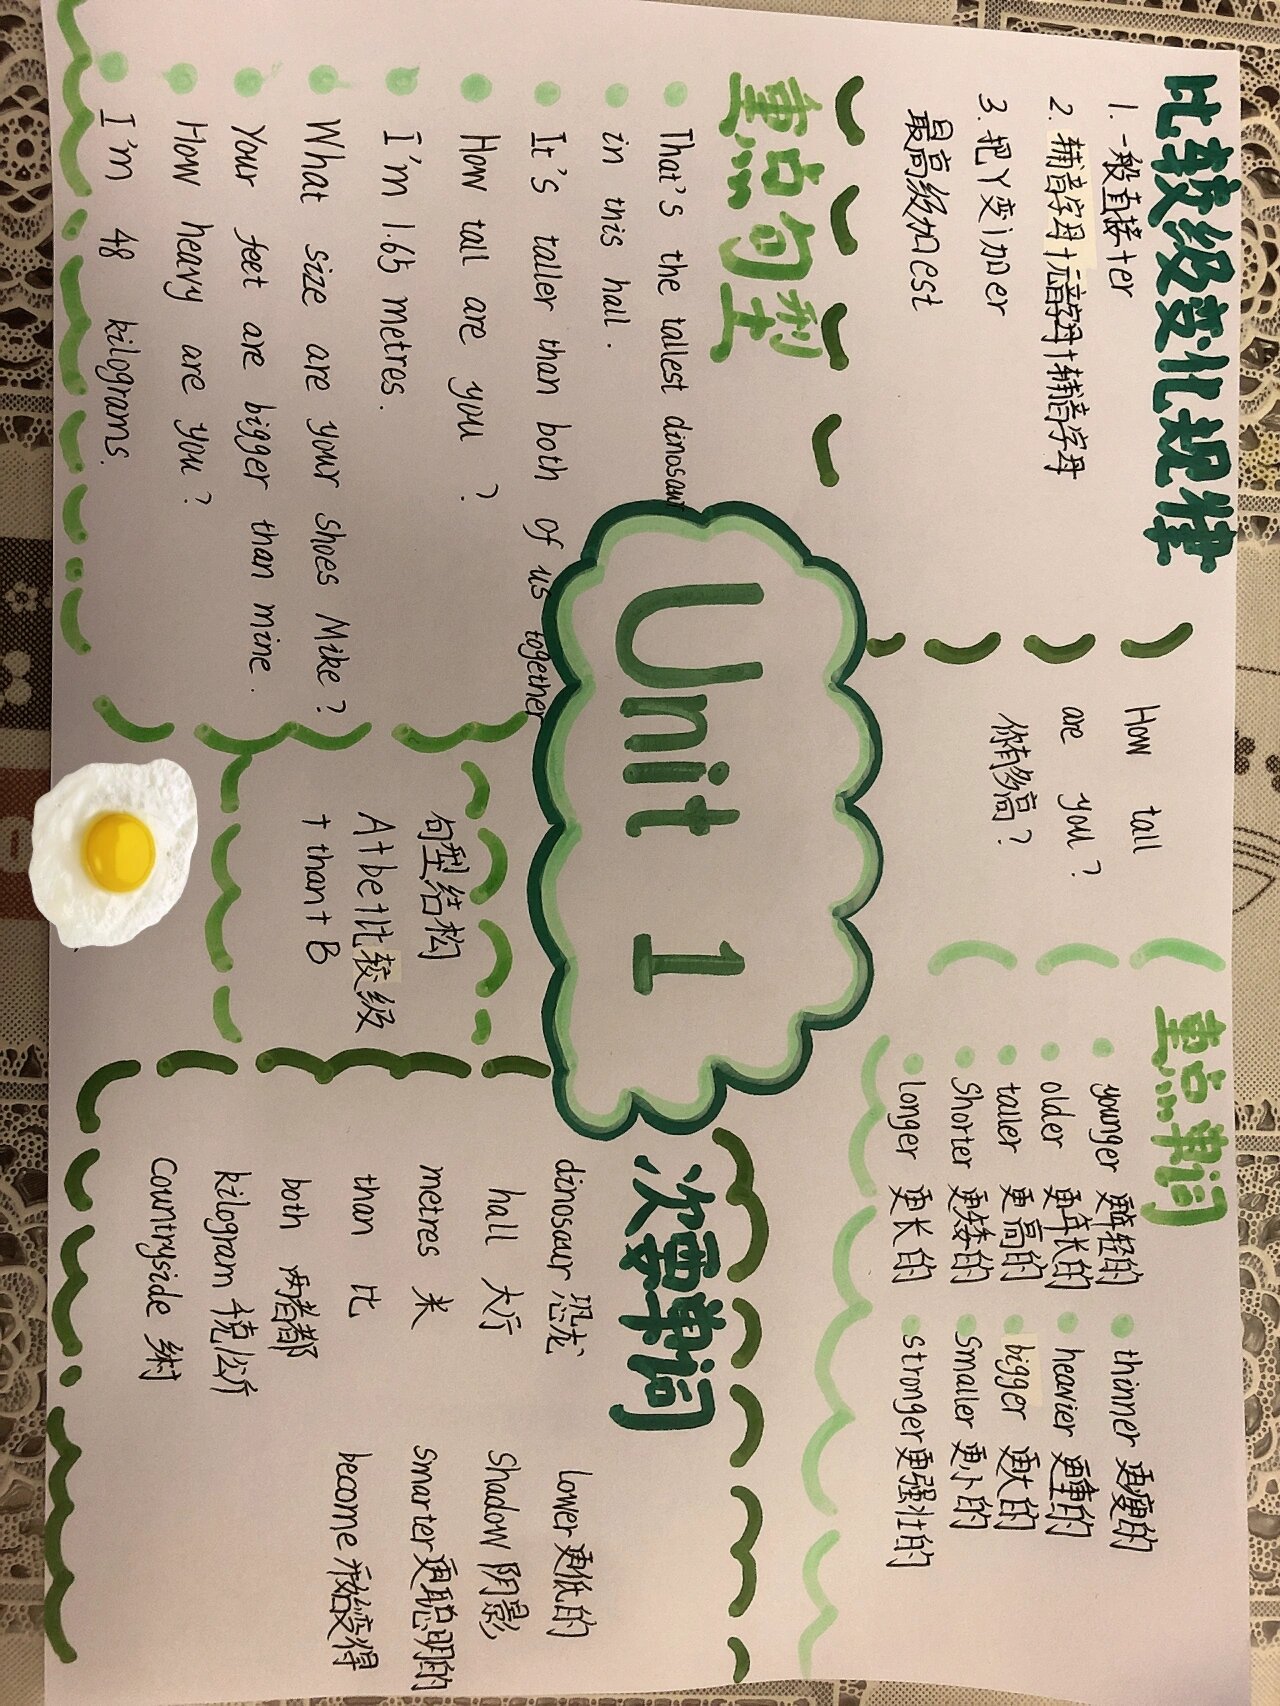 比较级变化规律
1. 一般直接+er
2. 辅音字母+元音字母+辅音字母
3. 把Y变i加er
最高级加est
How tall
are you?
你有多高?
重点单词
younger 更年轻的
older 更年长的
taller 更高的
shorter 更矮的
longer 更长的
thinner 更瘦的
heavier 更重的
bigger 更大的
smaller 更小的
stronger 更强壮的
Unit 1
重点句型
That's the tallest dinosaur
in this hall.
It's taller than both of us together
How tall are you?
I'm 1.65 metres.
What size are your shoes Mike?
Your feet are bigger than mine.
How heavy are you?
I'm 48 kilograms.
句型结构
A+be+比较级
+than+B
次要单词
dinosaur 恐龙
hall 大厅
metres 米
than 比
both 两者都
kilogram 千克/公斤
countryside 乡村
lower 更低的
shadow 阴影
smarter 更聪明的
become 开始变得